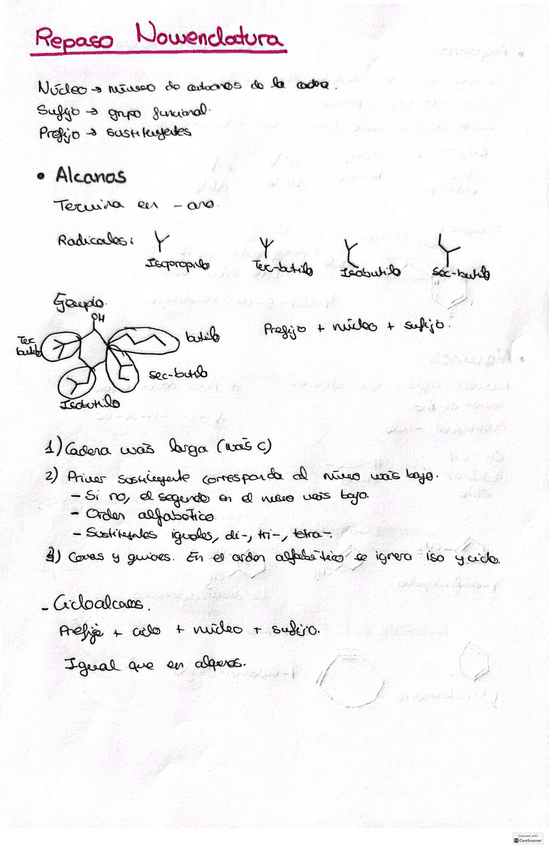 Repaso Nomenclatura
Núcleo → número de carbonos de la cadena.
Sufijo → grupo funcional.
Prefijo → sustituyentes
• Alcanos
Termina en -ano.
Radicales:
Isopropilo Tec-butilo Isobutilo Sec-butilo
Ejemplo.
Prefijo + núcleo + sufijo.
OH
Tec butilo
butilo
sec-butilo
Isobutilo
1) Cadena más larga (más C)
2) Primer sustituyente corresponda al número más bajo.
- Si no, el segundo en el número más bajo
- Orden alfabético
- Sustituyentes iguales, di-, tri-, tetra-.
3) Comas y guiones. En el orden alfabético se ignora iso y ciclo.
- Cicloalcanos.
Prefijo + ciclo + núcleo + sufijo.
Igual que en alquenos.
Scanned with
CamScanner